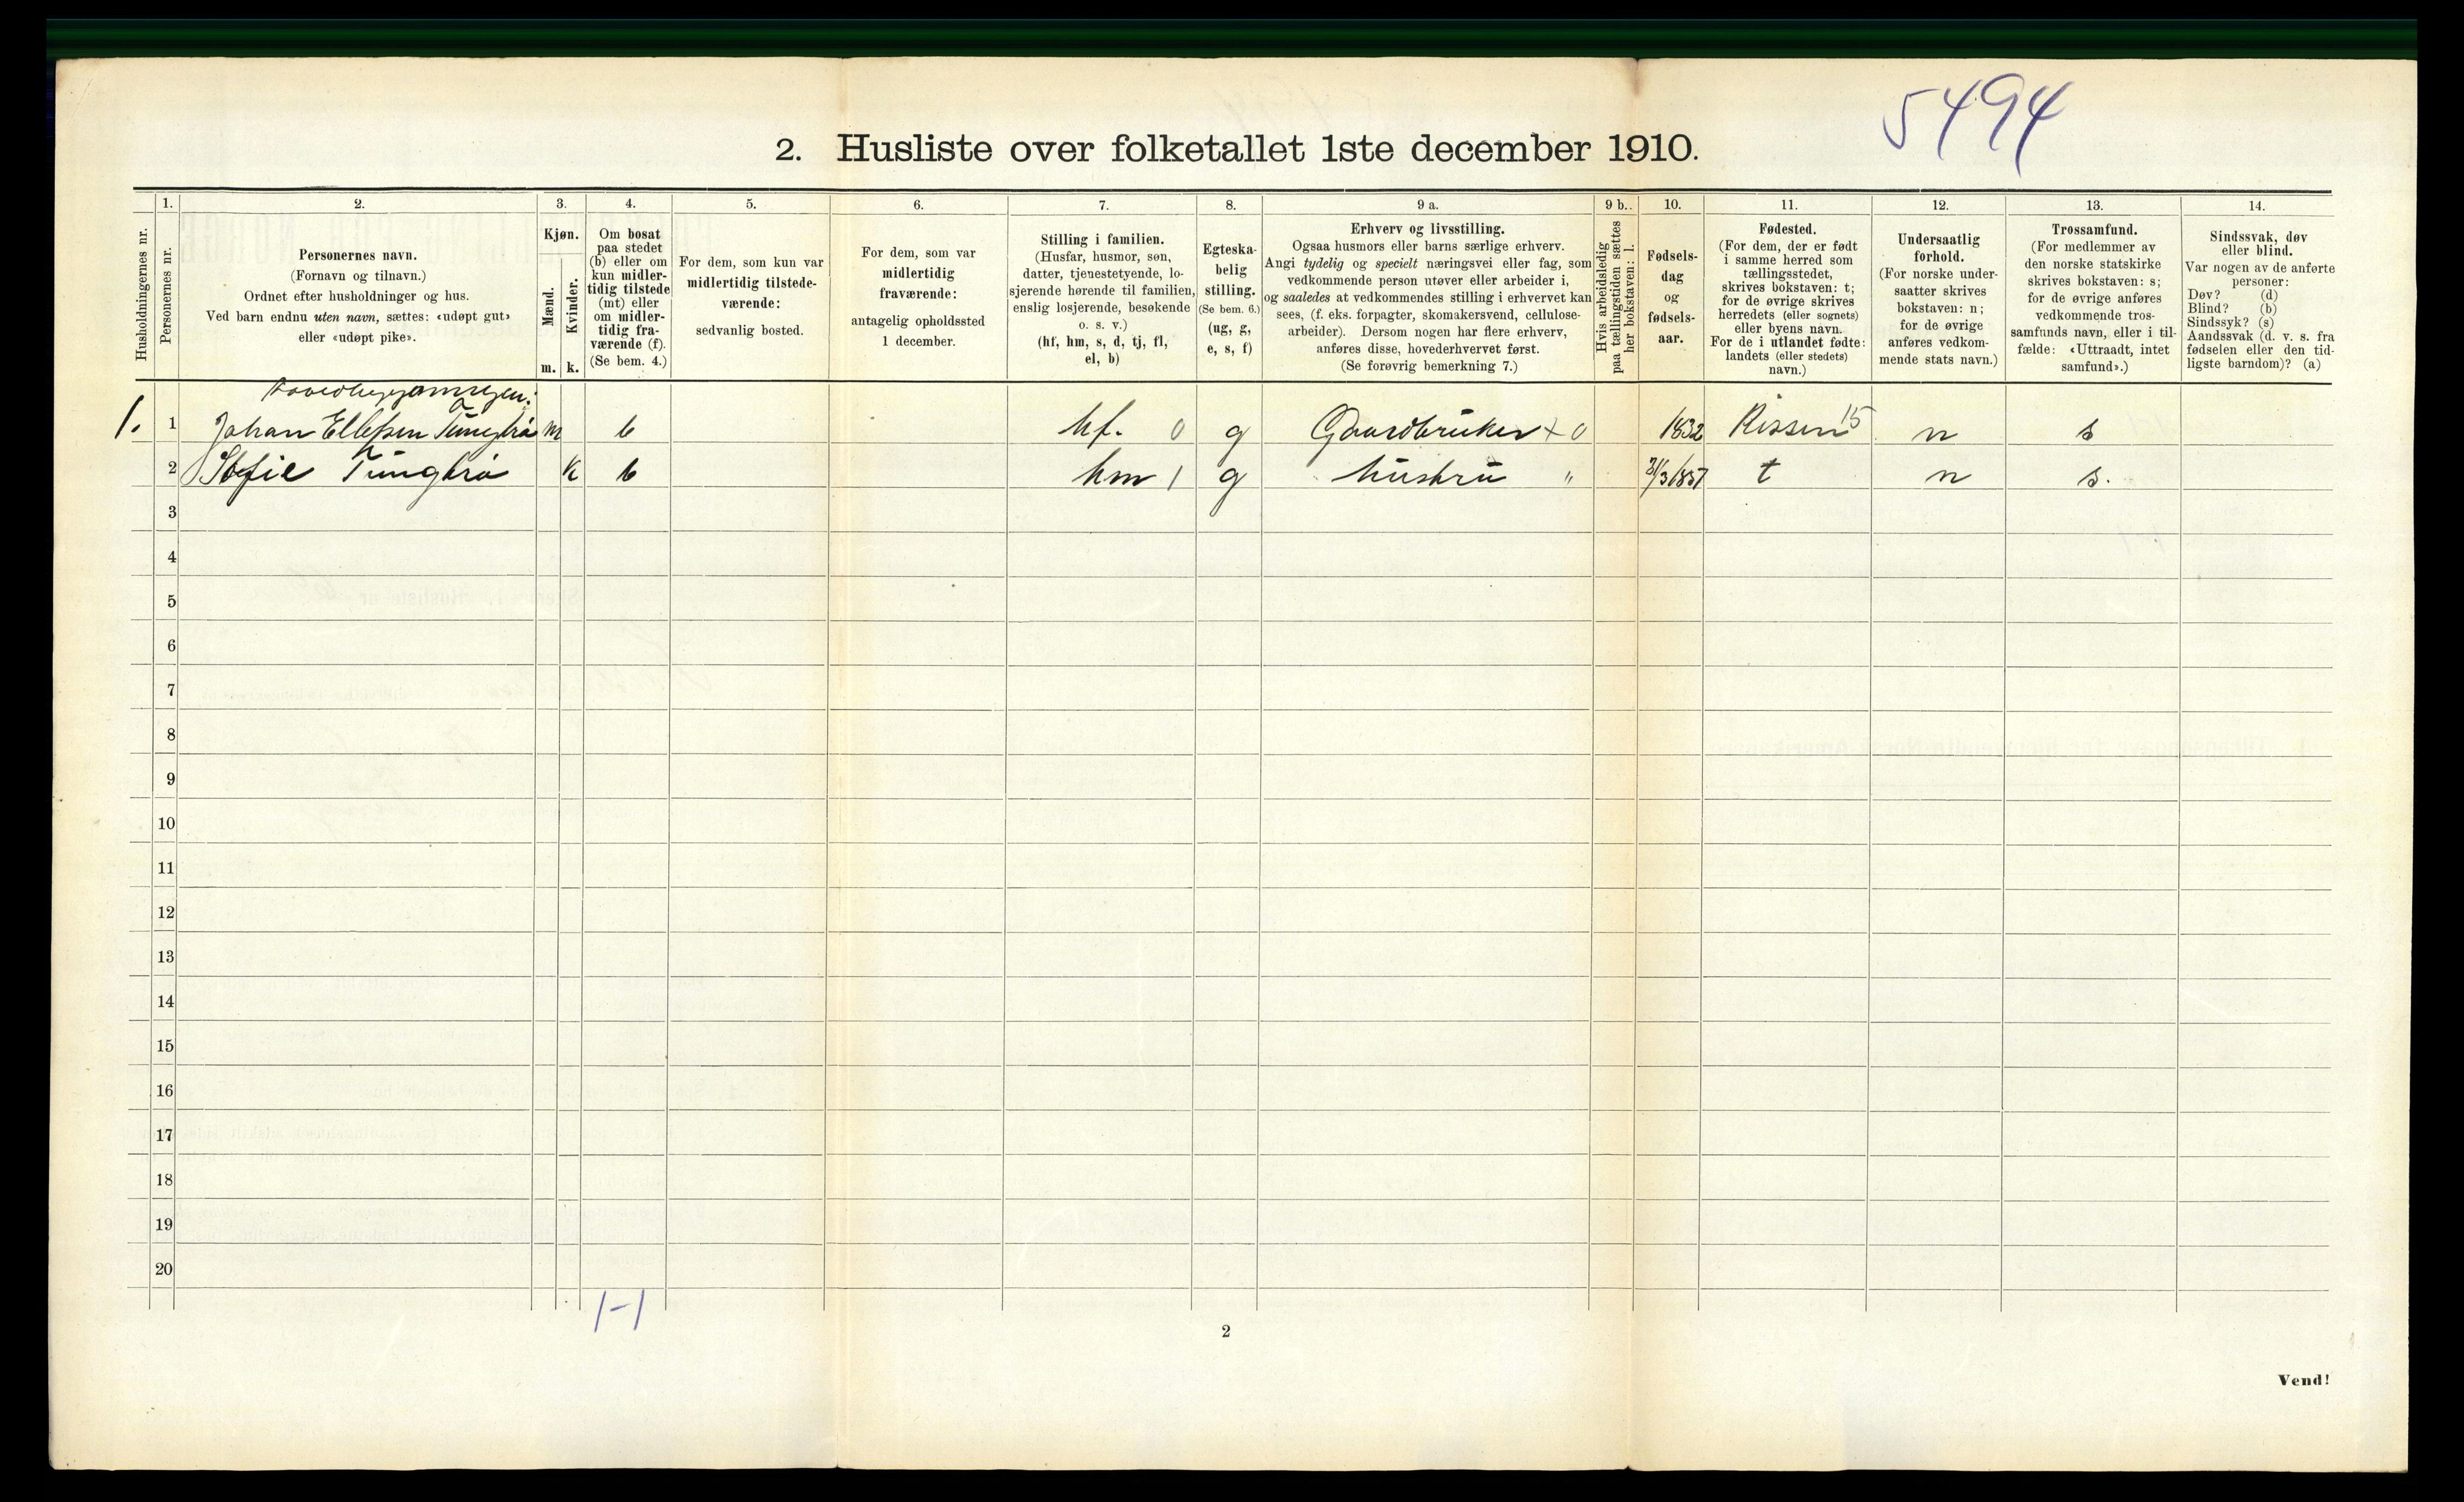 5494
2. Husliste over folketallet 1ste december 1910.
Husholdningernes nr.
1.
Personernes nr.
2.
Personernes navn.
(Fornavn og tilnavn.)
Ordnet efter husholdninger og hus.
Ved barn endnu uten navn, sættes: «udøpt gut»
eller «udøpt pike».
3.
Kjøn.
Mænd.
Kvinder.
m. k.
4.
Om bosat
paa stedet
(b) eller om
kun midler-
tidig tilstede
(mt) eller
om midler-
tidig fra-
værende (f).
(Se bem. 4.)
5.
For dem, som kun var
midlertidig tilstede-
værende:
sedvanlig bosted.
6.
For dem, som var
midlertidig
fraværende:
antagelig opholdssted
1 december.
7.
Stilling i familien.
(Husfar, husmor, søn,
datter, tjenestetyende, lo-
sjerende hørende til familien,
enslig losjerende, besøkende
o. s. v.)
(hf, hm, s, d, tj, fl,
el, b)
8.
Egteska-
belig
stilling.
(Se bem. 6.)
(ug, g,
e, s, f)
9 a.
Erhverv og livsstilling.
Ogsaa husmors eller barns særlige erhverv.
Angi tydelig og specielt næringsvei eller fag, som
vedkommende person utøver eller arbeider i,
og saaledes at vedkommendes stilling i erhvervet kan
sees, (f. eks. forpagter, skomakersvend, cellulose-
arbeider). Dersom nogen har flere erhverv,
anføres disse, hovederhvervet først.
(Se forøvrig bemerkning 7.)
9 b..
Hvis arbeidsledig
paa tællingstiden sættes
her bokstaven: l.
10.
Fødsels-
dag
og
fødsels-
aar.
11.
Fødested.
(For dem, der er født
i samme herred som
tællingsstedet,
skrives bokstaven: t;
for de øvrige skrives
herredets (eller sognets)
eller byens navn.
For de i utlandet fødte:
landets (eller stedets)
navn.)
12.
Undersaatlig
forhold.
(For norske under-
saatter skrives
bokstaven: n;
for de øvrige
anføres vedkom-
mende stats navn.)
13.
Trossamfund.
(For medlemmer av
den norske statskirke
skrives bokstaven: s;
for de øvrige anføres
vedkommende tros-
samfunds navn, eller i til-
fælde: «Uttraadt, intet
samfund».)
14.
Sindssvak, døv
eller blind.
Var nogen av de anførte
personer:
Døv? (d)
Blind? (b)
Sindssyk? (s)
Aandssvak (d. v. s. fra
fødselen eller den tid-
ligste barndom)? (a)
1. 1 Johan Ellefsen m b hf. 0 g Gaardbruker + 0 1832 Rissen 15 n s
2 Sofie k b hm 1 g hustru " 31/3 1857 t n s.
3
4
5
6
7
8
9
10
11
12
13
14
15
16
17
18
19
20
1-1
2
Vend!